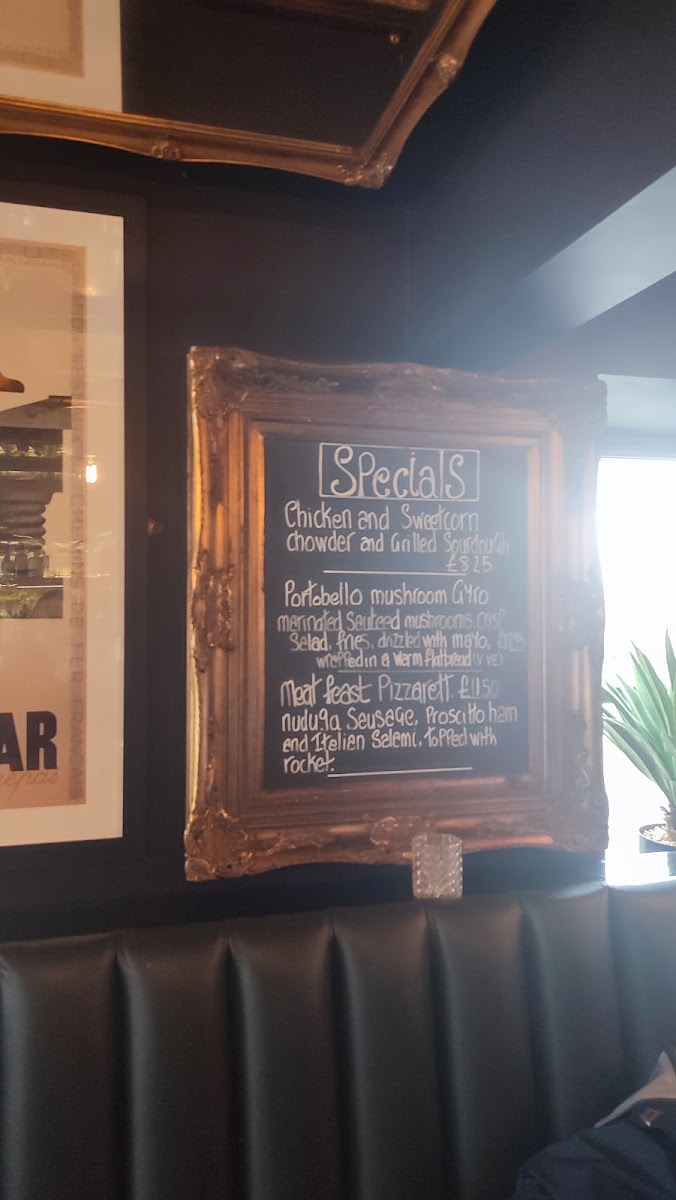 Specials
Chicken and Sweetcorn
chowder and Grilled Sourdough
£8.25
Portobello mushroom Gyro
marinated Sauteed mushrooms, crisp
Salad, fries, drizzled with mayo,
wrapped in a warm flatbread (V VE)
Meat feast Pizzarett. £11.50
nuduga Sausage, Proscitto ham
and Italian Salami. topped with
rocket.
AR
CHEMINS DE FER FRANÇAIS